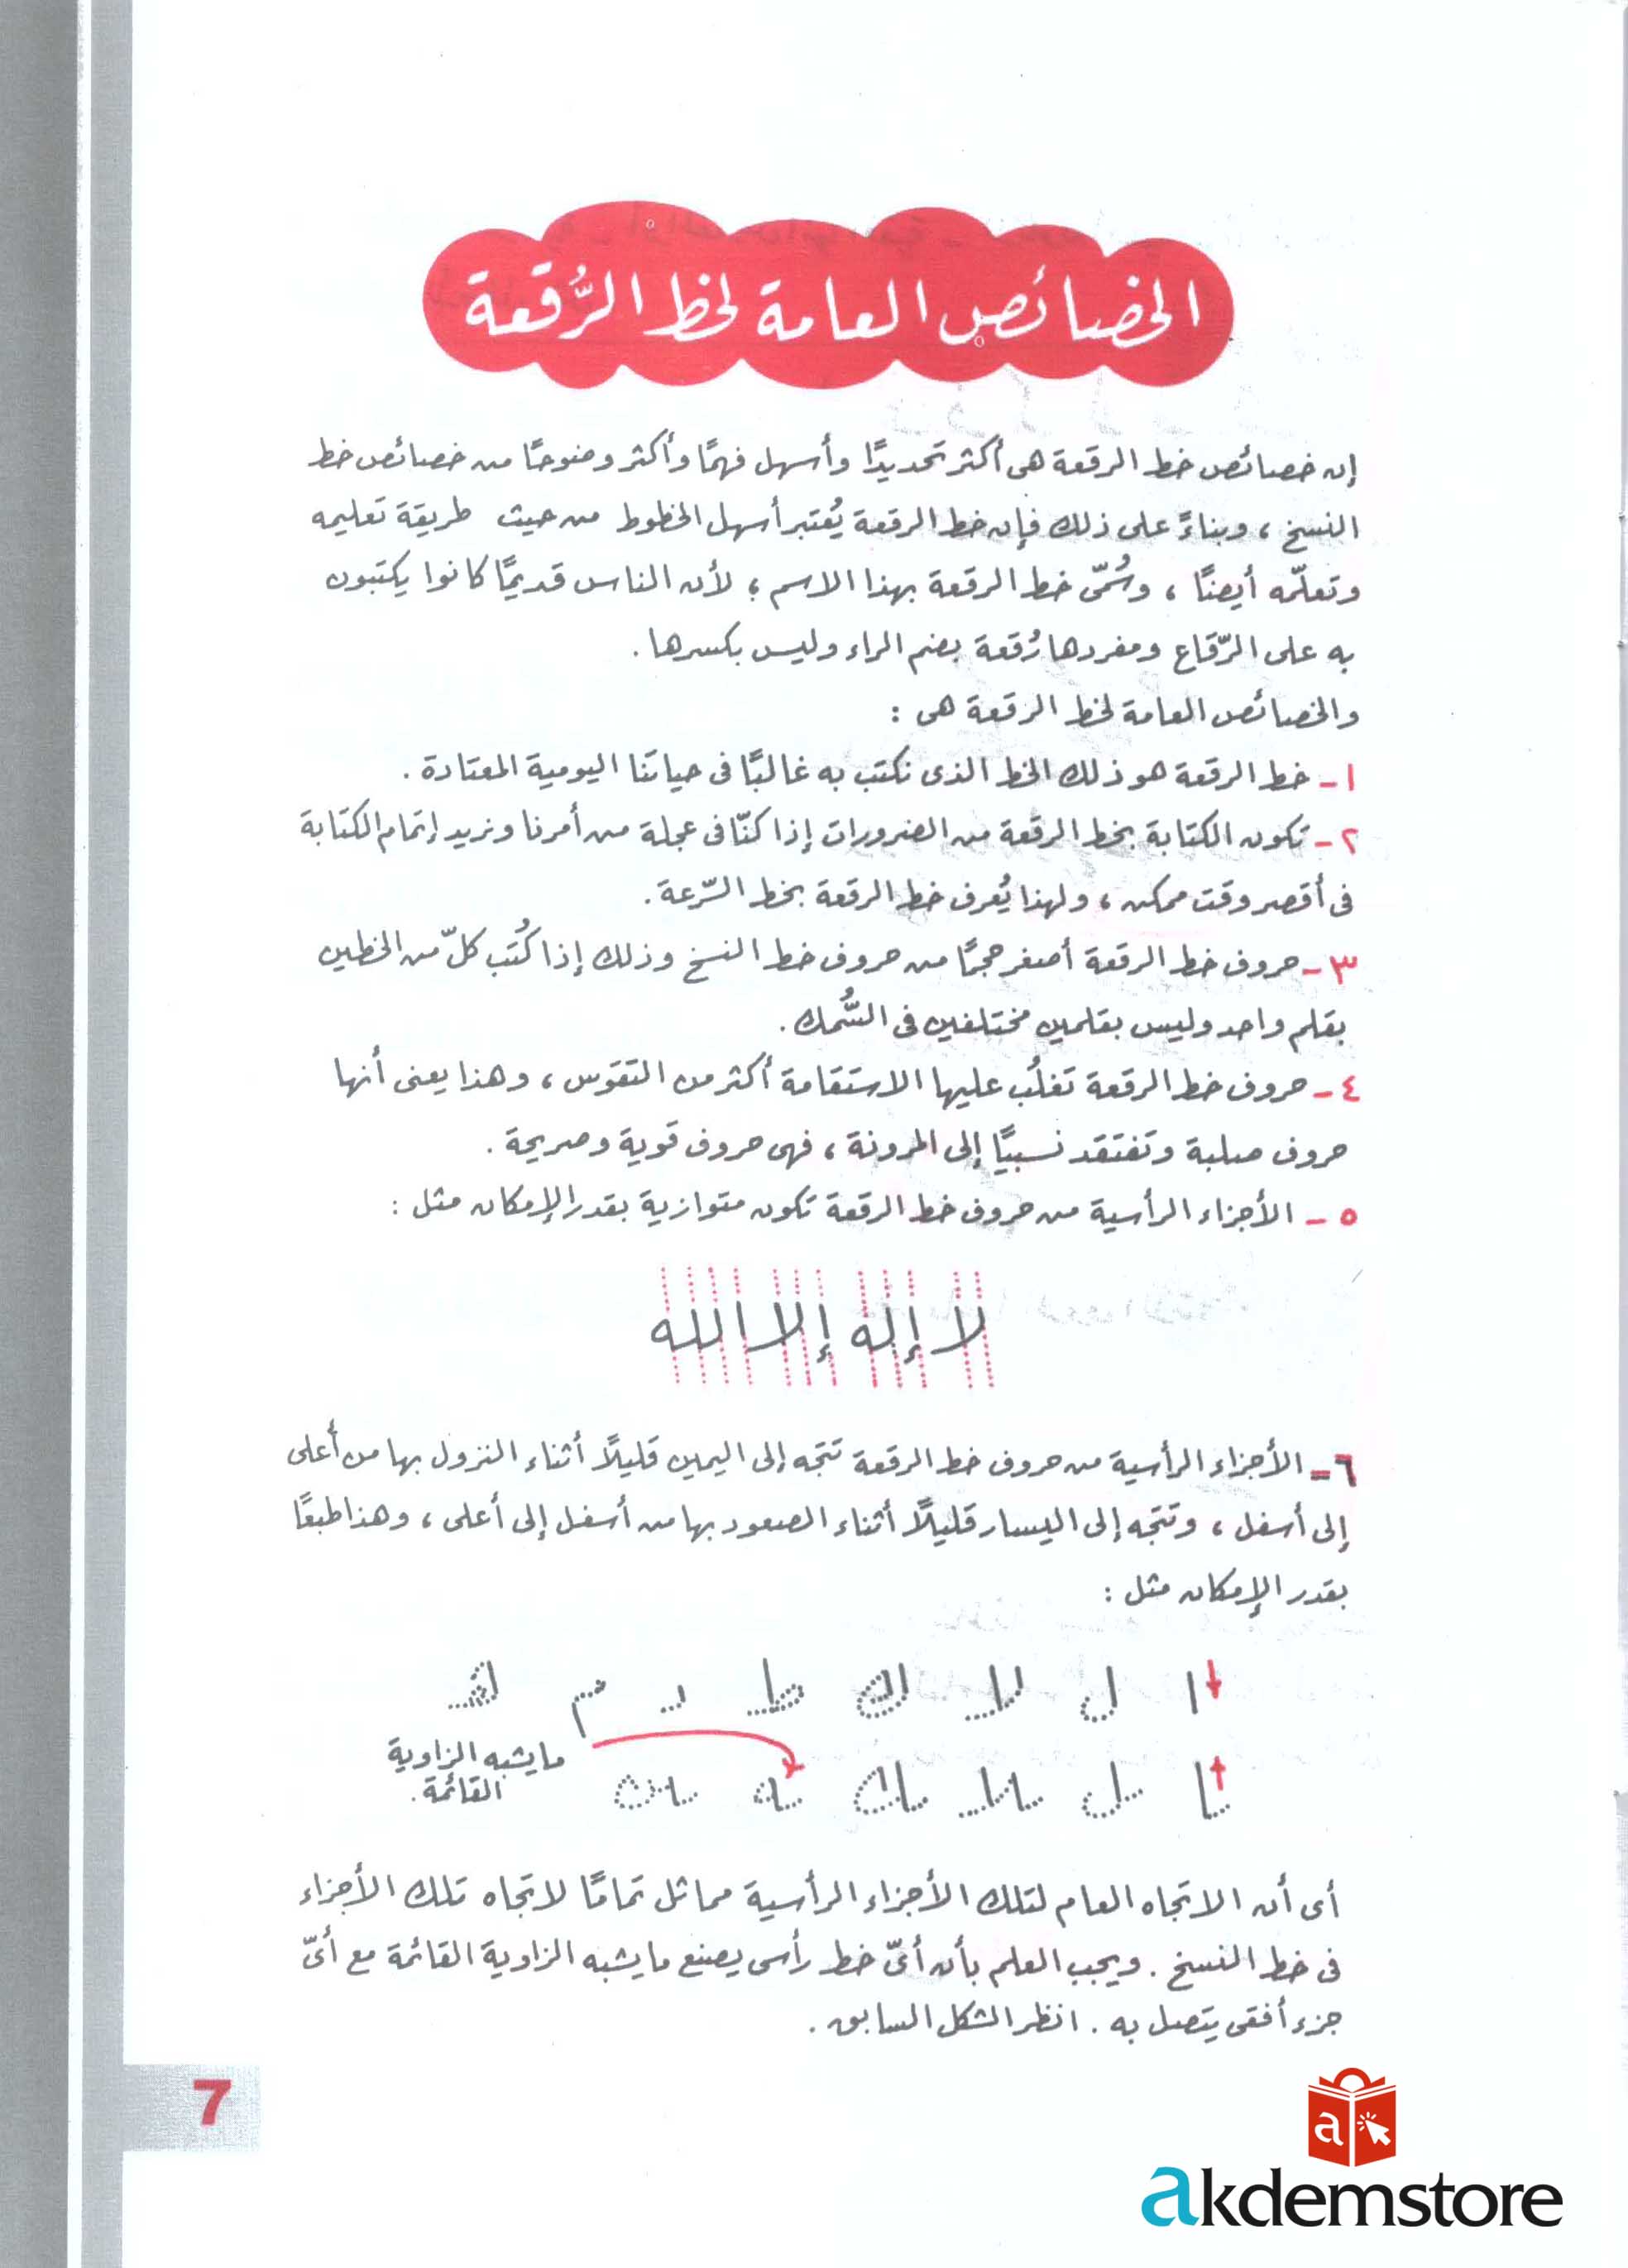 الخصائص العامة لخط الرُّقعة
إن خصائص خط الرقعة هى أكثر تحديدًا وأسهل فهمًا وأكثر وضوحًا من خصائص خط
النسخ ، وبناءً على ذلك فإن خط الرقعة يُعتبر أسهل الخطوط من حيث طريقة تعليمه
وتعلّمه أيضًا ، وسُمّى خط الرقعة بهذا الاسم ؛ لأن الناس قديمًا كانوا يكتبون
به على الرّقاع ومفردها رُقعة بضم الراء وليس بكسرها .
والخصائص العامة لخط الرقعة هى :
١ـ خط الرقعة هو ذلك الخط الذى نكتب به غالبًا فى حياتنا اليومية المعتادة .
٢ـ تكون الكتابة بخط الرقعة من الضرورات إذا كنّا فى عجلة من أمرنا ونريد إتمام الكتابة
فى أقصر وقت ممكن ، ولهذا يُعرف خط الرقعة بخط السّرعة .
٣ـ حروف خط الرقعة أصغر حجمًا من حروف خط النسخ وذلك إذا كُتب كلّ من الخطين
بقلم واحد وليس بقلمين مختلفين فى السُّمك .
٤ـ حروف خط الرقعة تغلُب عليها الاستقامة أكثر من التقوس ، وهذا يعنى أنها
حروف صلبة وتفتقد نسبيًا إلى المرونة ، فهى حروف قوية وصريحة .
٥ـ الأجزاء الرأسية من حروف خط الرقعة تكون متوازية بقدر الإمكان مثل :
لا إله إلا الله
٦ـ الأجزاء الرأسية من حروف خط الرقعة تتجه إلى اليمين قليلًا أثناء النزول بها من أعلى
إلى أسفل ، وتتجه إلى اليسار قليلًا أثناء الصعود بها من أسفل إلى أعلى ، وهذا طبعًا
بقدر الإمكان مثل :
ما يشبه الزاوية
القائمة .
أى أن الاتجاه العام لتلك الأجزاء الرأسية مماثل تمامًا لاتجاه تلك الأجزاء
فى خط النسخ . ويجب العلم بأن أىّ خط رأسى يصنع ما يشبه الزاوية القائمة مع أىّ
جزء أفقى يتصل به . انظر الشكل السابق .
7
akdemstore